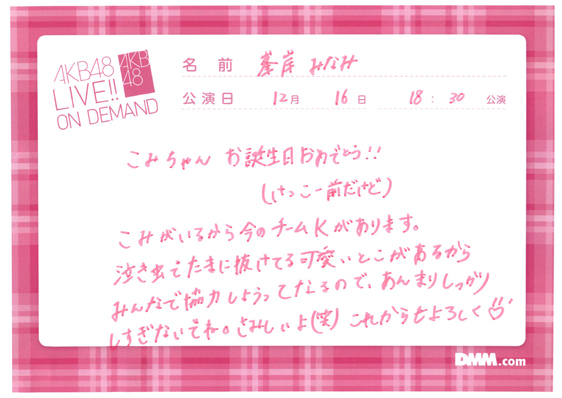 AKB48
LIVE!!
ON DEMAND
AKB
48
名前 峯岸 みなみ
公演日 12月 16日 18:30 公演
こみちゃん お誕生日おめでとう!!
(けっこー前だけど)
こみがいるから今のチームKがあります。
泣き虫でたまに抜けてる可愛いとこがあるから
みんなで協力しようってなるので、あんまりしっかり
しすぎないでね。さみしいよ(笑) これからもよろしく
DMM.com